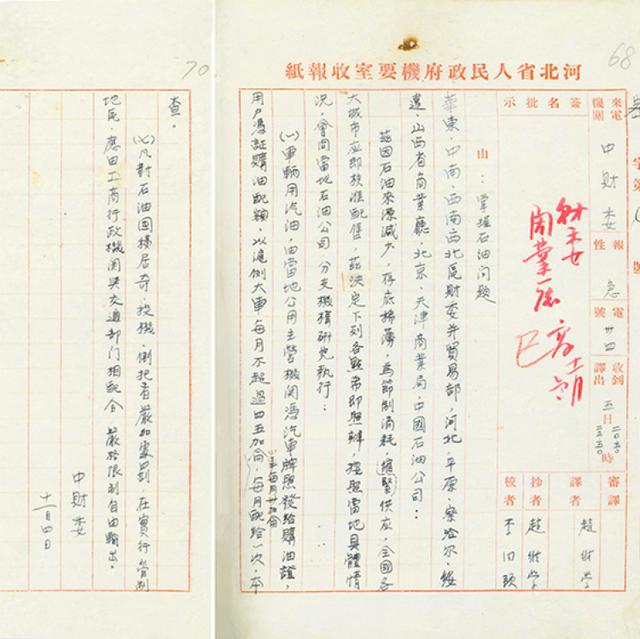 河北省人民政府機要室收報紙
68
來電機關
中財委
報性
急
電號
卄四
收到
譯出
五日
時
簽名批示
財委
商業廳
審譯
譯者
抄者
校者
趙
由：掌握石油问题
華東、中南、西南西北區財委并貿易部，河北、平原、察哈尔、綏
遠、山西省商業廳，北京、天津商業局，中國石油公司：
茲因石油來源減少，存底稀薄，為節制消耗，供应，全國各
大城市应即核准配售，茲决定下列各點希即照辦，按照當地具體情
况，會同當地石油公司，分支機構研究执行：
(一)車輛用汽油，由當地公用主管機関憑汽車牌照發給購油證，
用户憑証購油配額，以滬例大車每月不超過四五加侖，每月配給一次，本
70
查。
凡對石油囤積居奇，投機、倒把者嚴加處罰，在實行管制
地區，應由工商行政機関與交通部门相配合，嚴格限制自由輸出。
中財委
十一月四日